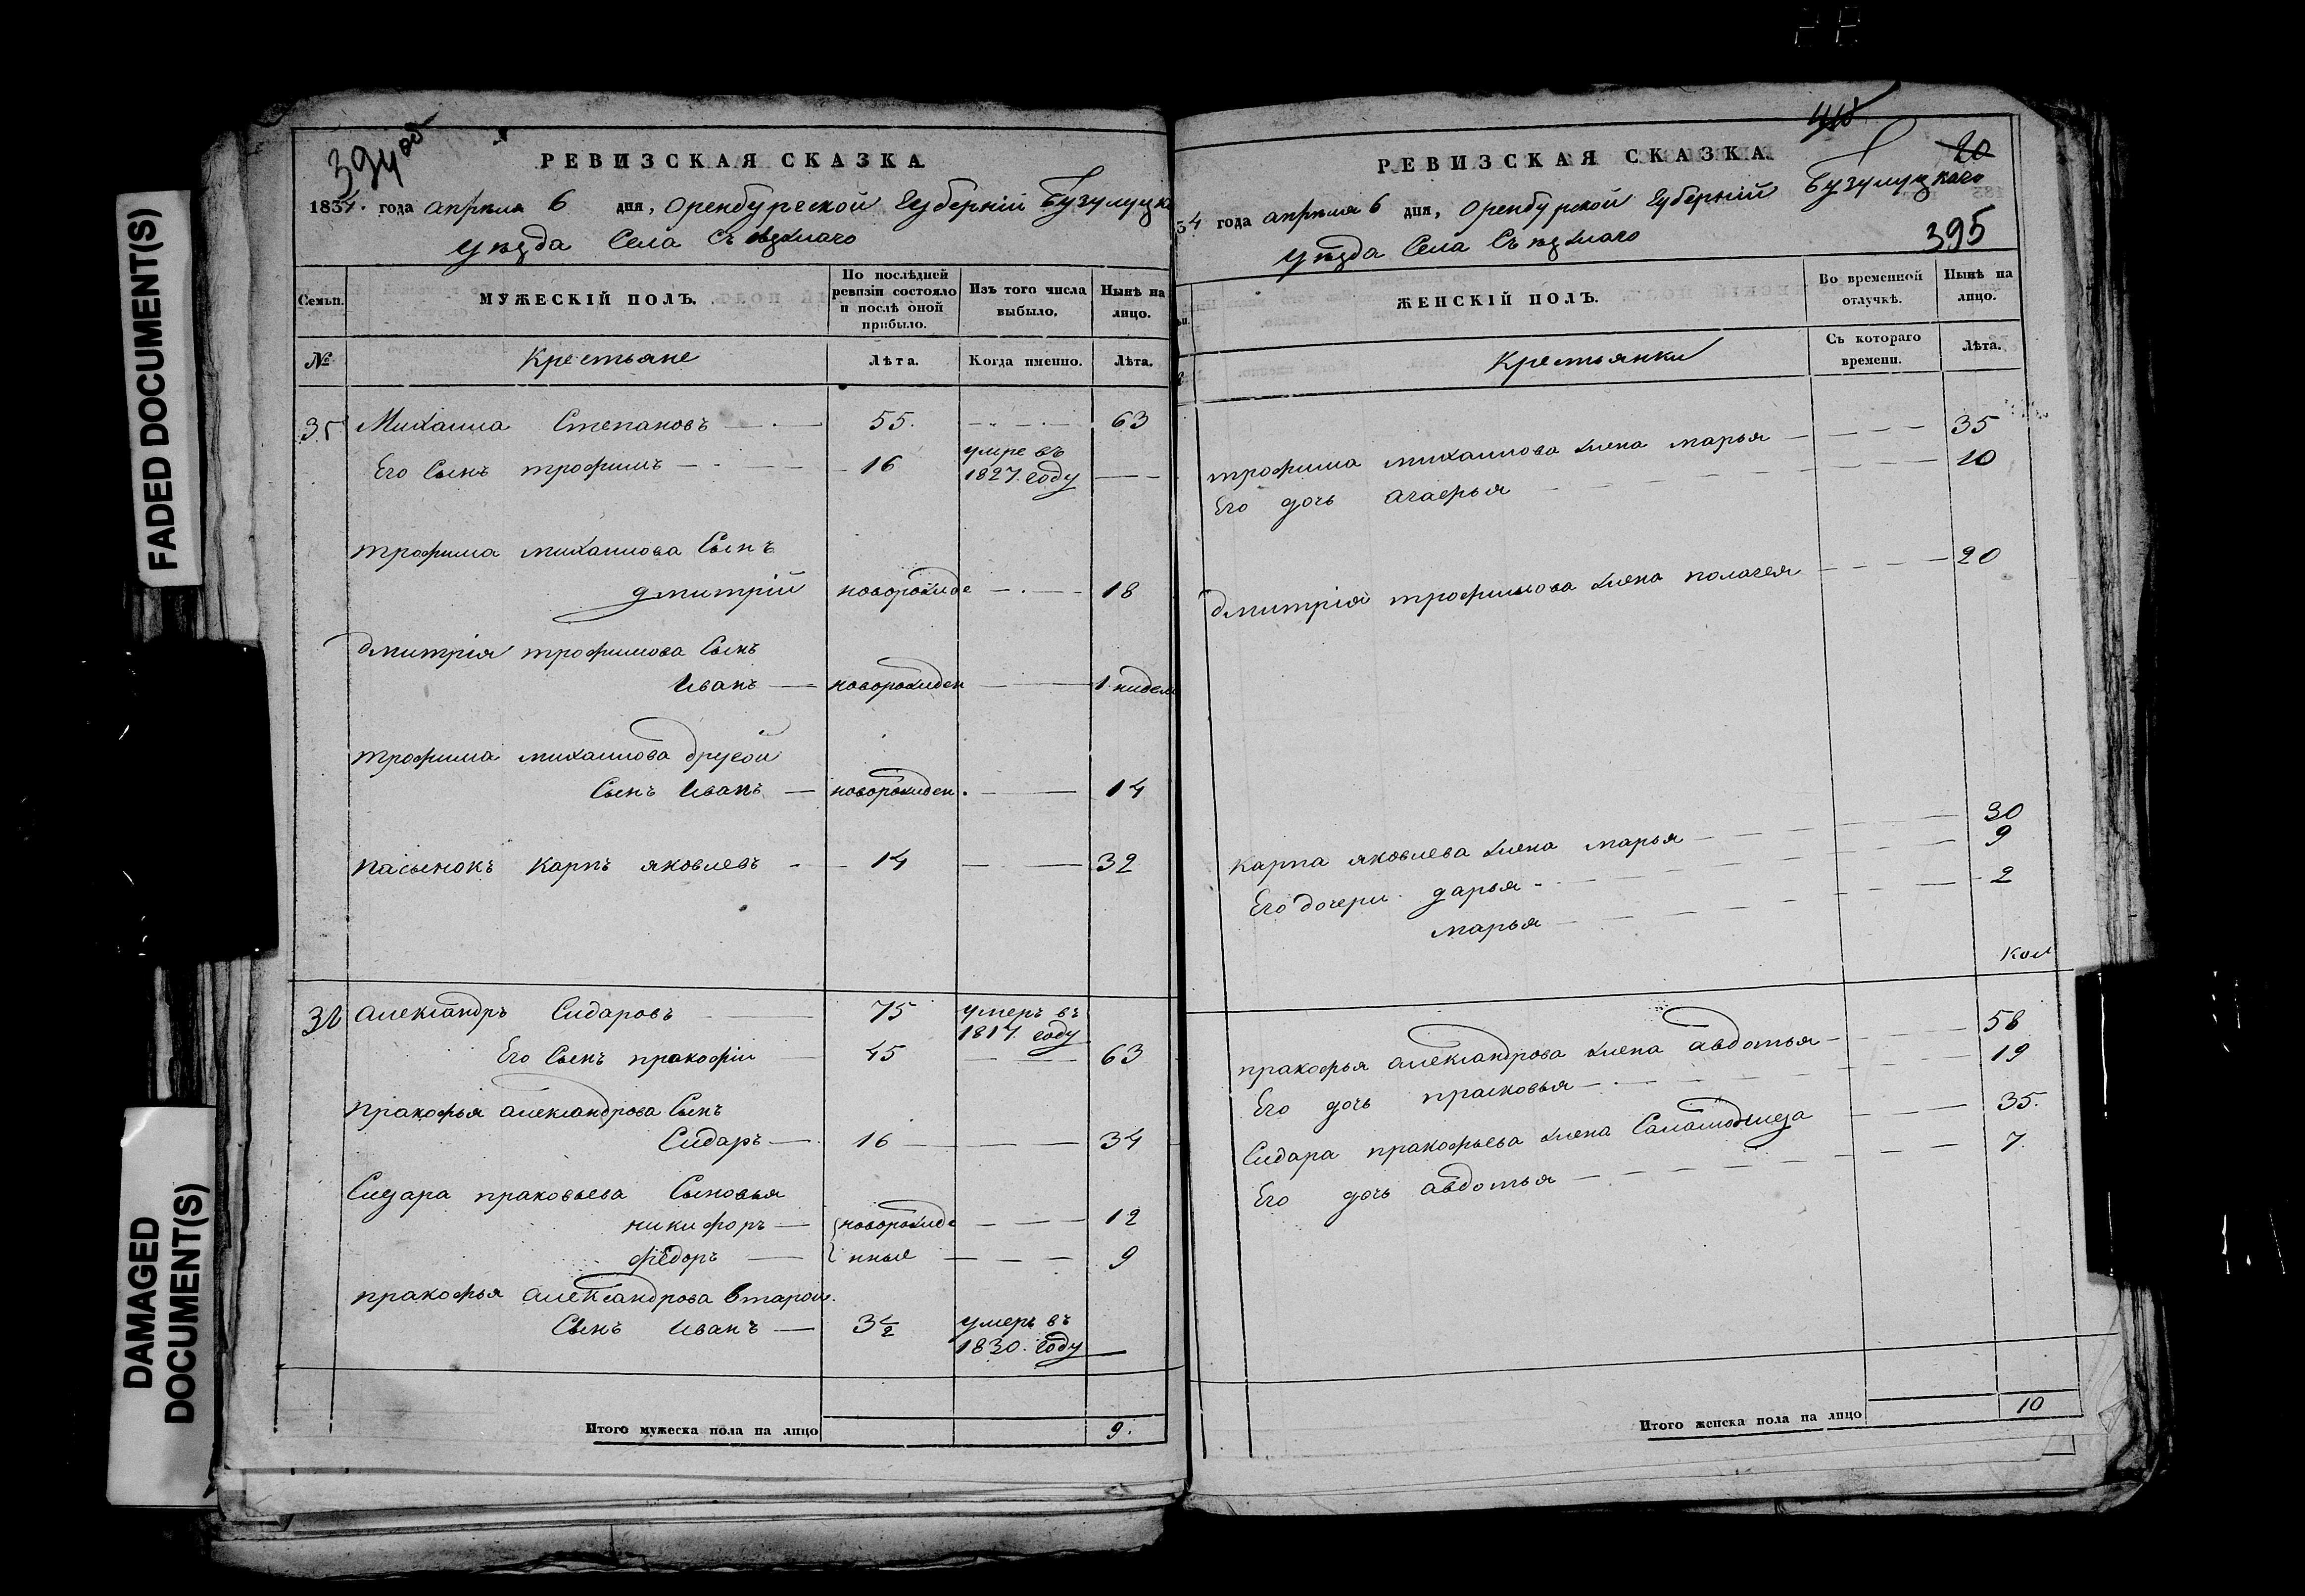 FADED DOCUMENT(S)
DAMAGED
DOCUMENT(S)
394 об
РЕВИЗСКАЯ СКАЗКА
1834. года апреля 6 дня, Оренбургской Губернии Бузулуцка
уезда Села Съезжаго
Семьи. МУЖЕСКІЙ ПОЛЪ. По послѣдней ревизіи состояло и послѣ оной прибыло. Изъ того числа выбыло. Нынѣ на лицо.
№ Крестьяне Лѣта. Когда именно. Лѣта.
35 Михаила Степановъ 55. 63
Его Сынъ трофимъ 16 умре въ 1827. году
трофима михаилова Сынъ
дмитрій новорожде 18
дмитрія трофимова Сынъ
Иванъ новорожден 1 нидел
трофима михаилова другой
Сынъ Иванъ новорожден. 14
пасынокъ карпъ яковлевъ 14 32
36 александръ Сидаровъ 75 умеръ въ 1817. году
Его Сынъ пракофіи 45 63
пракофья александрова Сынъ
Сидаръ 16 34
Сидара пракофьева Сыновья
никифоръ новорожде 12
федоръ нные 9
пракофья александрова второи
Сынъ Иванъ 3 1/2 умеръ въ 1830. году
Итого мужеска пола на лицо 9.
20
РЕВИЗСКАЯ СКАЗКА.
34 года апреля 6 дня, Оренбургской Губерній Бузулуцкаго
уезда Села Съезжаго 395
ЖЕНСКІЙ ПОЛЪ. Во временной отлучкѣ. Нынѣ на лицо.
Крестьянки Съ котораго времени. Лѣта.
трофима михаилова жена марья 35
Его дочь агафья 10
дмитрія трофимова жена палагея 20
карпа яковлева жена марья 30
Его дочери дарья 9
марья 2
пракофья александрова жена авдотья 58
Его дочь прасковья 19
Сидара пракофьева жена 35.
Его дочь авдотья 7
Итого женска пола на лицо 10